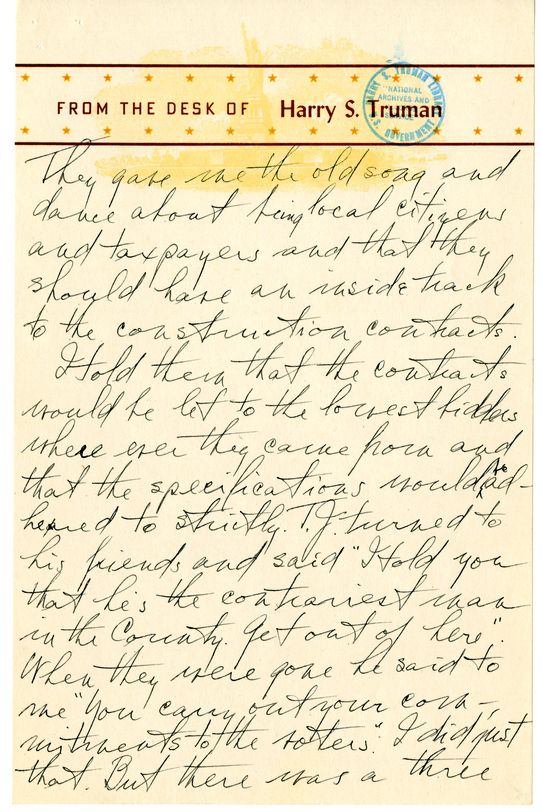 FROM THE DESK OF Harry S. Truman
HARRY S. TRUMAN LIBRARY
"NATIONAL
ARCHIVES AND
U.S. GOVERNMENT
They gave me the old song and
dance about being local citizens
and taxpayers and that they
should have an inside track
to the construction contracts.
I told them that the contracts
would be let to the lowest bidders
where ever they came from and
that the specifications would be ad-
heared to strictly. T.J. turned to
his friends and said "I told you
that he's the contrariest man
in the County. Get out of here".
When they were gone he said to
me "you carry out your com-
mitments to the voters". I did just
that. But there was a three